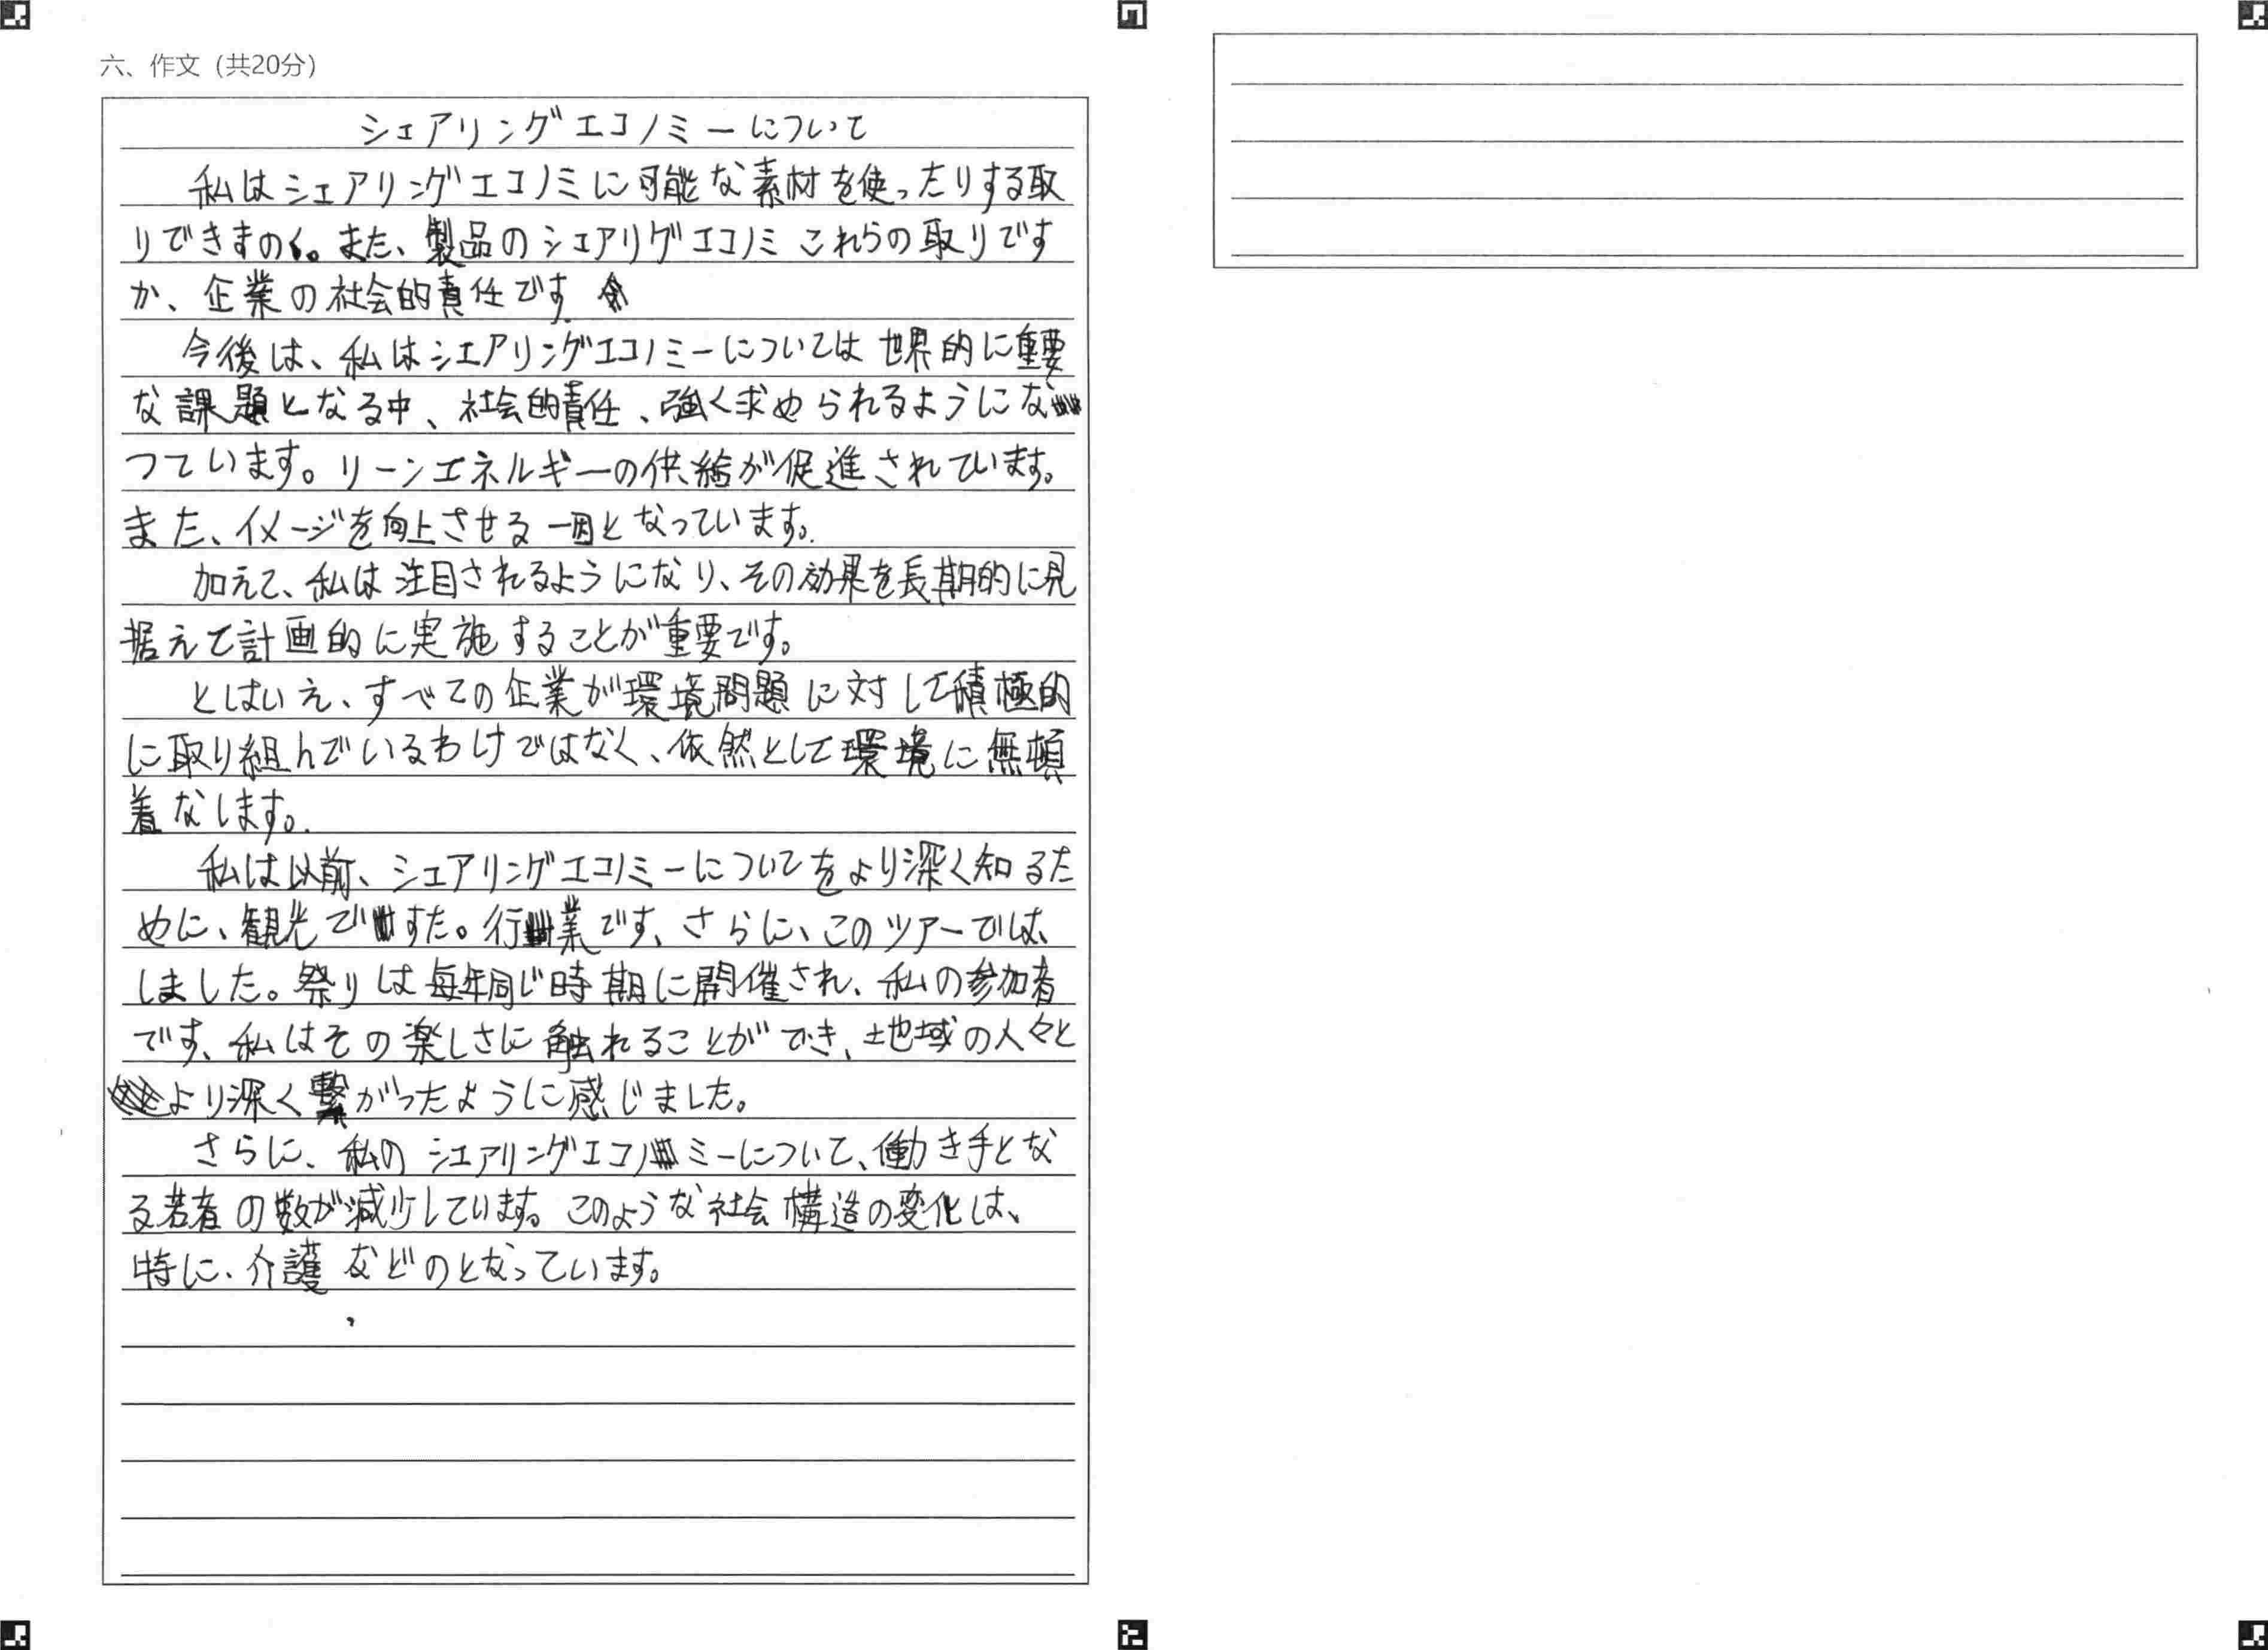 六、作文（共20分）
シェアリングエコノミーについて
私はシェアリングエコノミに可能な素材を使ったりする取
りできますの。また、製品のシェアリグエコノミこれらの取りです
か、企業の社会的責任です
今後は、私はシェアリングエコノミーについては世界的に重要
な課題となる中、社会的責任、強く求められるようにな
つています。リーンエネルギーの供給が促進されています。
また、イメージを向上させる一因となっています。
加えて、私は注目されるようになり、その効果を長期的に見
据えて計画的に実施することが重要です。
とはいえ、すべての企業が環境問題に対して積極的
に取り組んでいるわけではなく、依然として環境に無頓
着なします。
私は以前、シェアリングエコノミーについてをより深く知るた
めに、観光ですた。行業です、さらに、このツアーでは、
しました。祭りは毎年同じ時期に開催され、私の参加者
です、私はその楽しさに触れることができ、土地域の人々と
より深く繋がったように感じました。
さらに、私のシェアリングエコノミーについて、働き手とな
る若者の数が減少しています。このような社会構造の変化は、
特に、介護などのとなっています。